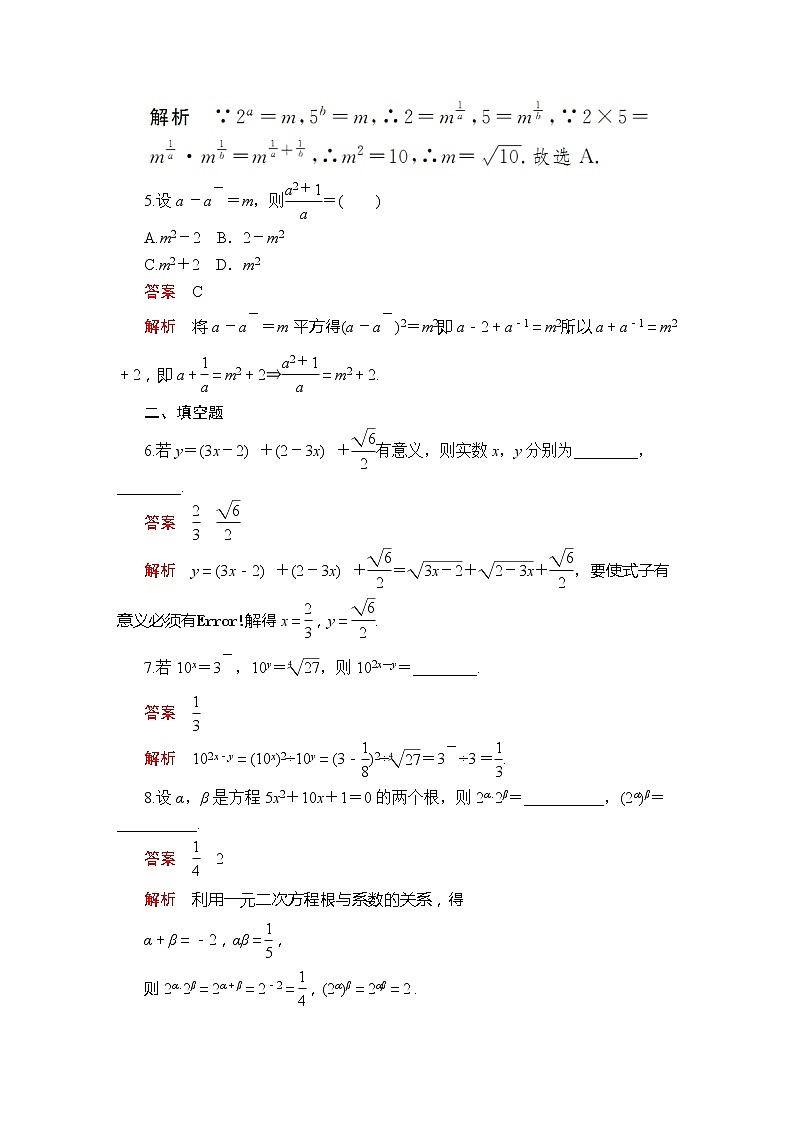 解析 ∵2^a=m,5^b=m,∴2=m^{1/a},5=m^{1/b},∵2×5=
m^{1/a}·m^{1/b}=m^{1/a+1/b},∴m²=10,∴m=√10.故选 A.
5.设 a -a^-=m，则(a²+1)/a=( )
A.m²-2 B．2-m²
C.m²+2 D．m²
答案 C
解析 将 a-a^-=m 平方得(a-a^-)²=m²,即 a-2+a^{-1}=m²,所以 a+a^{-1}=m²
+2，即 a+1/a=m²+2⇒(a²+1)/a=m²+2.
二、填空题
6.若 y=(3x-2) +(2-3x) +√6/2有意义，则实数 x，y 分别为________，
________.
答案 2/3 √6/2
解析 y=(3x-2) +(2-3x) +√6/2=√(3x-2)+√(2-3x)+√6/2，要使式子有
意义必须有Error!解得 x=2/3，y=√6/2.
7.若 10^x=3^-，10^y=⁴√27，则 10^{2x-y}=________.
答案 1/3
解析 10^{2x-y}=(10^x)²÷10^y=(3-1/8)²÷⁴√27=3^-÷3 =1/3.
8.设 α，β 是方程 5x²+10x+1=0 的两个根，则 2^α·2^β=__________，(2^α)^β=
__________.
答案 1/4 2
解析 利用一元二次方程根与系数的关系，得
α+β=-2，αβ=1/5，
则 2^α·2^β=2^{α+β}=2^{-2}=1/4，(2^α)^β=2^{αβ}=2 .